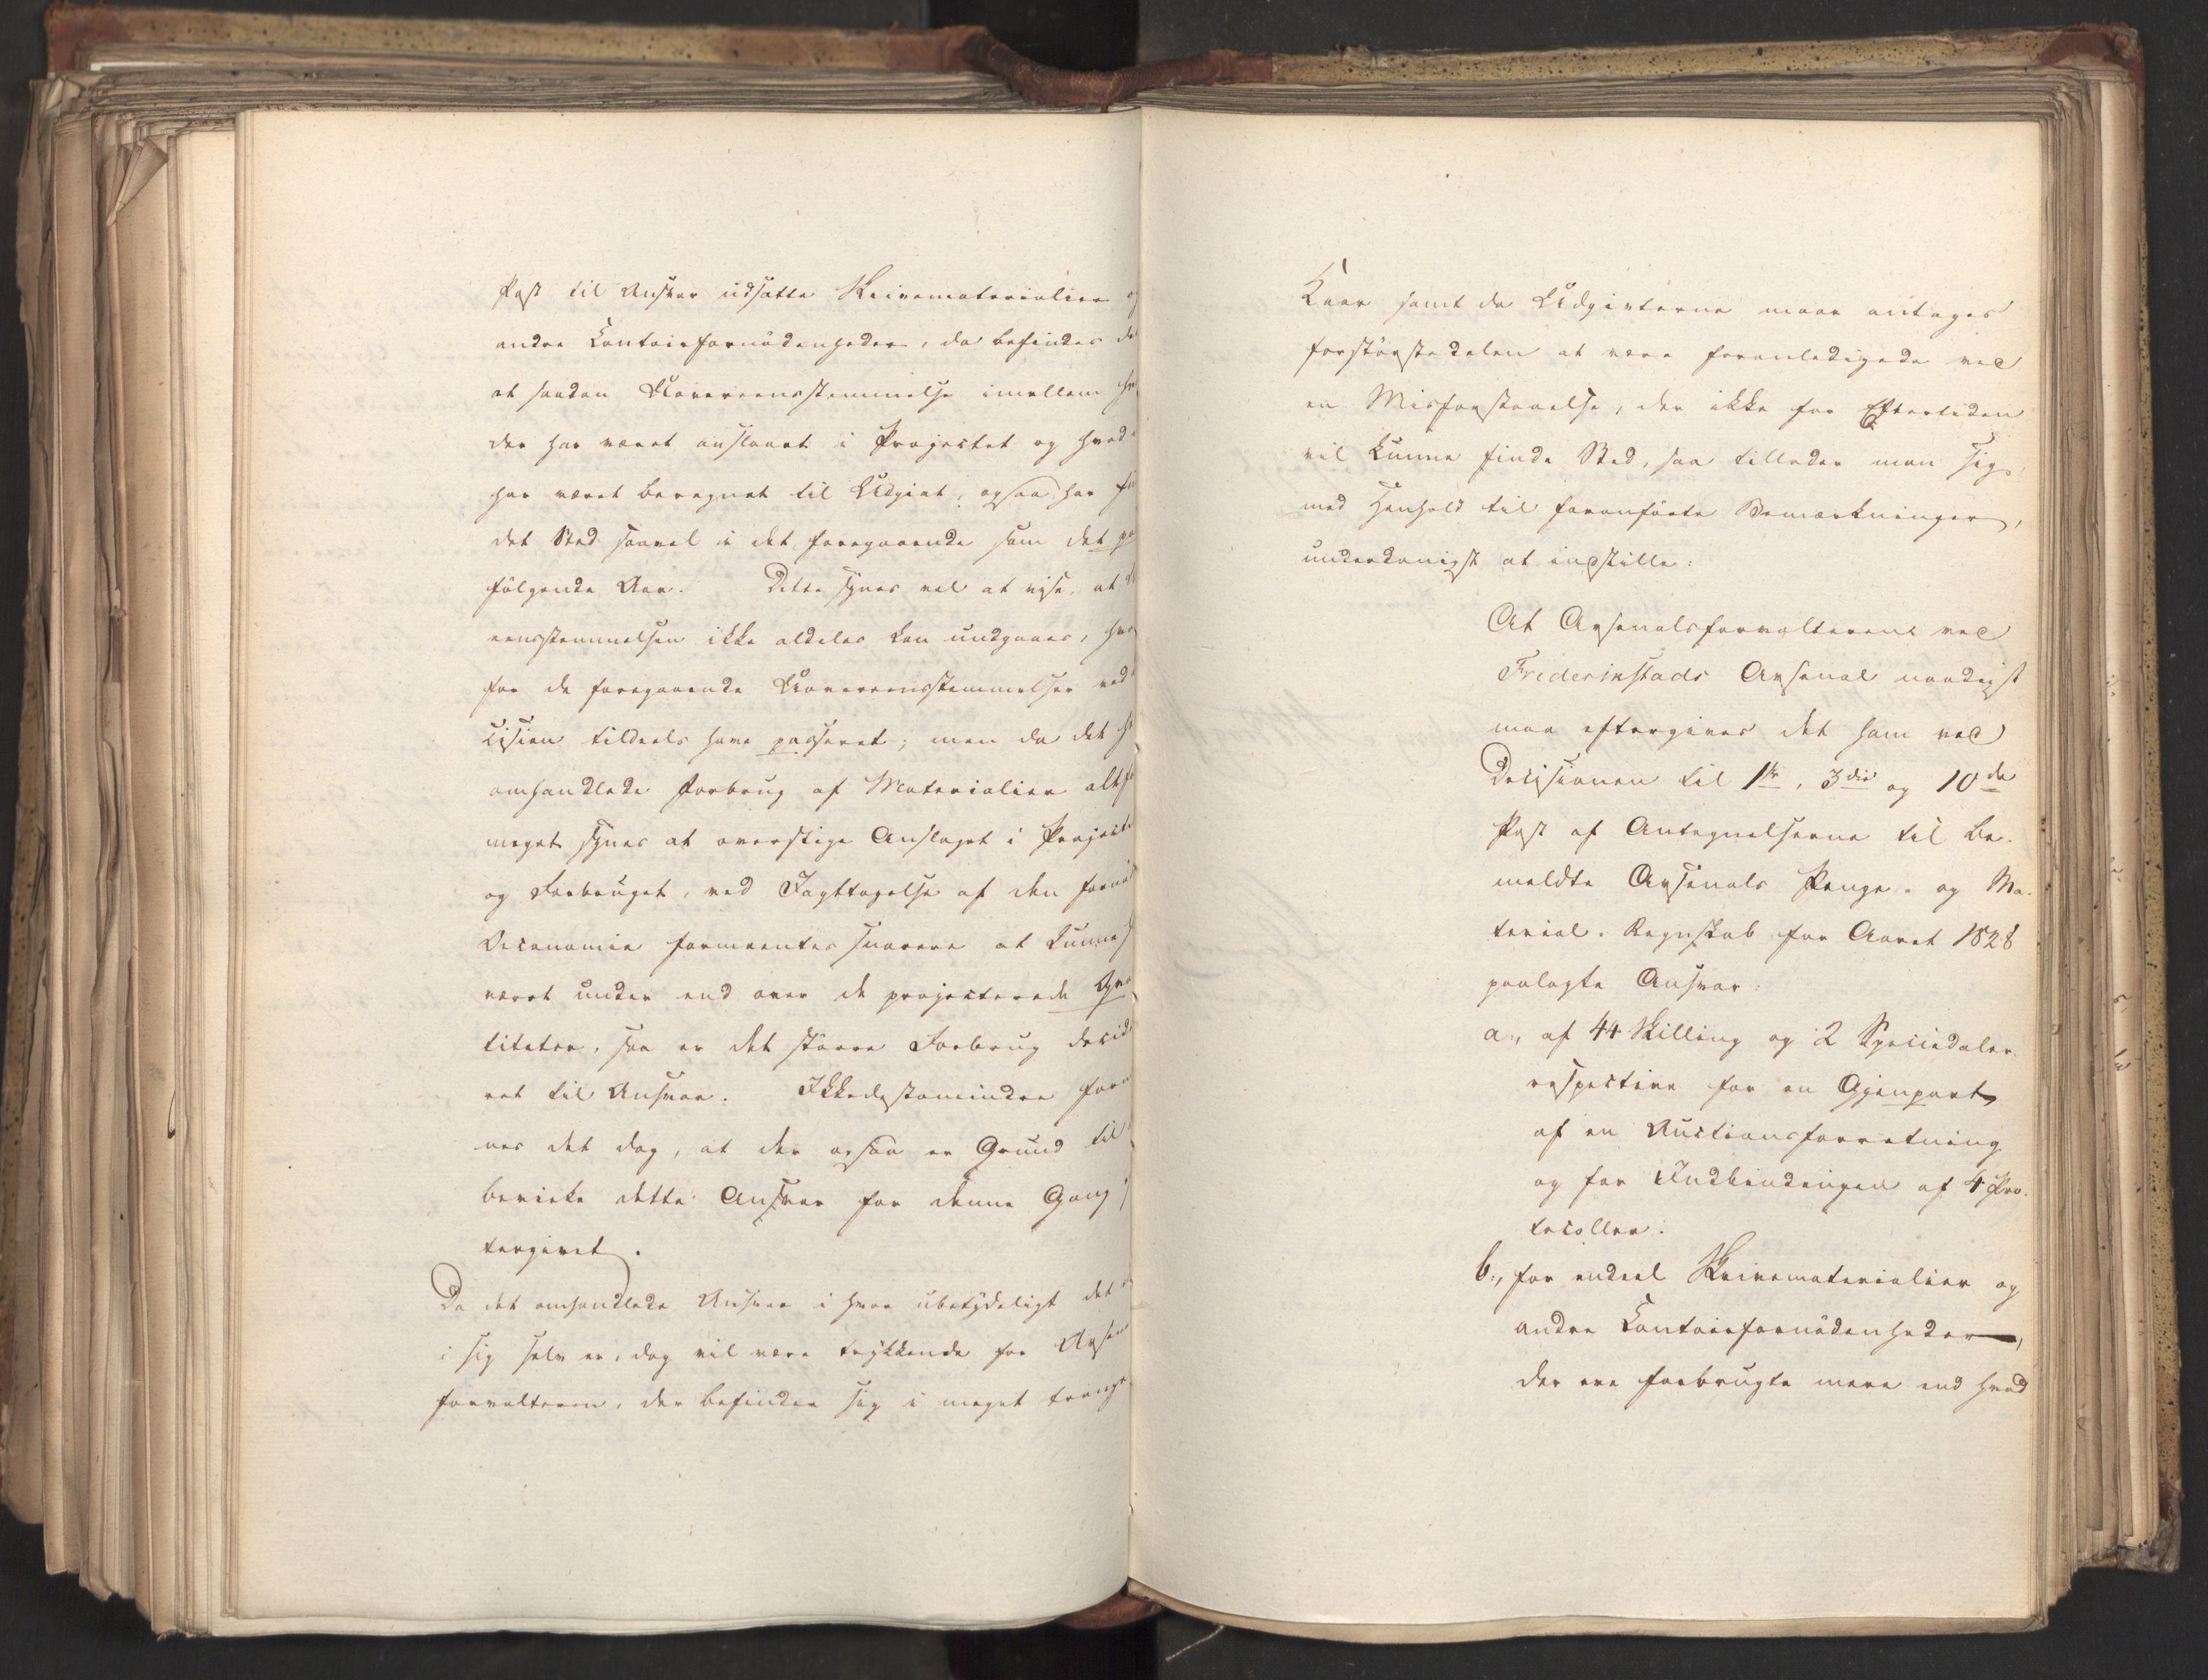 Post til Ansvar udsatte Skrivematerialier og
andre Contoirfornödenheder, da befindes det
at saadan Uovereensstemmelse imellem hvad
der har været anslaaet i Projectet og hvad
har været beregnet til Udgivt, ogsaa har fun
det Sted saavel i det foregaaende som det paa
fölgende Aar. Dette synes vel at vise, at
eensstemmelsen ikke aldeles kan undgaaes, hvor
for de foregaaende Uovereensstemmelser ved
cision tildeels have passeret; men da det her
omhandlede Forbrug af Materialier altfor
meget synes at overstige Anslaget i Projectet
og Forbruget, ved Iagttagelse af den fornödne
Oeconomie formeentes snarere at kunne have
været under end over de projecterede Qvan
titeter, saa er det större Forbrug decide
ret til Ansvar. Ikkedestomindre formee
nes det dog, at der ogsaa er Grund til
bevirke dette Ansvar for denne Gang ef
tergivet.
Da det omhandlede Ansvar i hvor ubetydeligt det
i sig selv er, dog vil være trykkende for Arsenal
forvalteren, der befinder sig i meget trange
Kaar samt da Udgivterne maae antages
forstörstedelen at være foranledigede ved
en Misforstaaelse, der ikke for Eftertiden
vil kunne finde Sted, saa tillader man sig,
med Henhold til foranförte Bemærkninger,
underdanigst at indstille:
At Arsenalsforvalteren ved
Friderikstads Arsenal naadigst
maa eftergives det ham ved
Decisionen til 1ste, 3die og 10de
Post af Antegnelserne til be-
meldte Arsenals Penge- og Ma-
terial-Regnskab for Aaret 1828
paalagte Ansvar:
a., af 44 Skilling og 2 Speciedaler
respective for en Gjenpart
af en Auctionsforretning
og for Indbindingen af 4 Pro-
tocoller.
b., for endeel Skrivematerialier og
andre Contoirfornödenheder,
der ere forbrugte mere end hvad